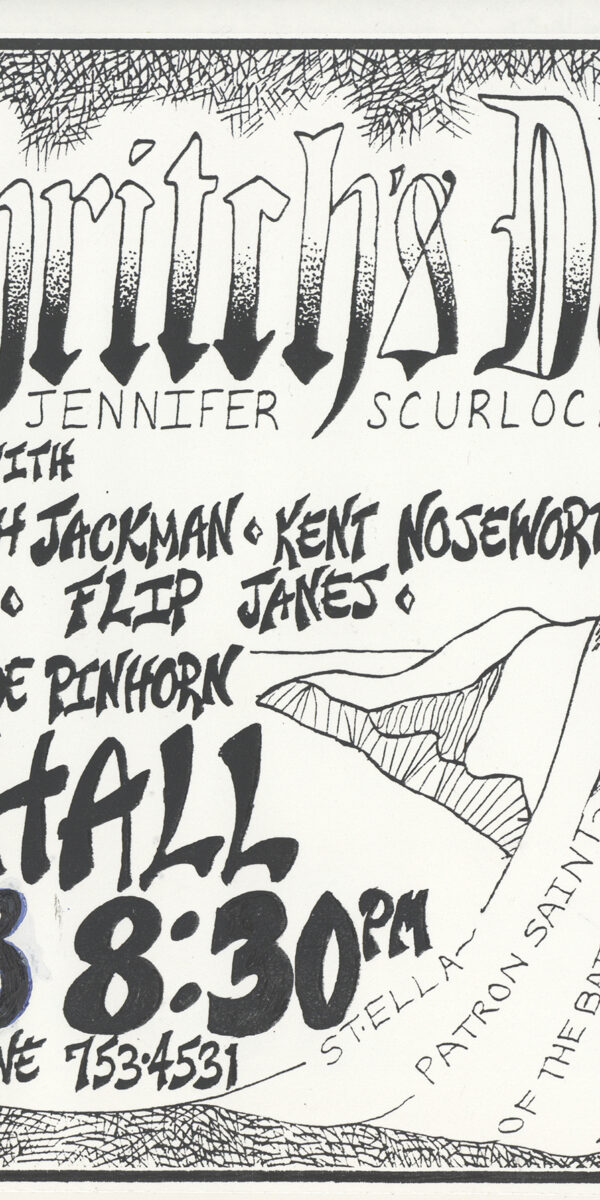 ritch's D
JENNIFER SCURLOC
WITH
H JACKMAN ◇ KENT NOSEWORT
◇ FLIP JANES ◇
DE PINHORN
HALL
8:30 PM
NE 753·4531
ST.ELLA~
PATRON SAINT~
OF THE BAT